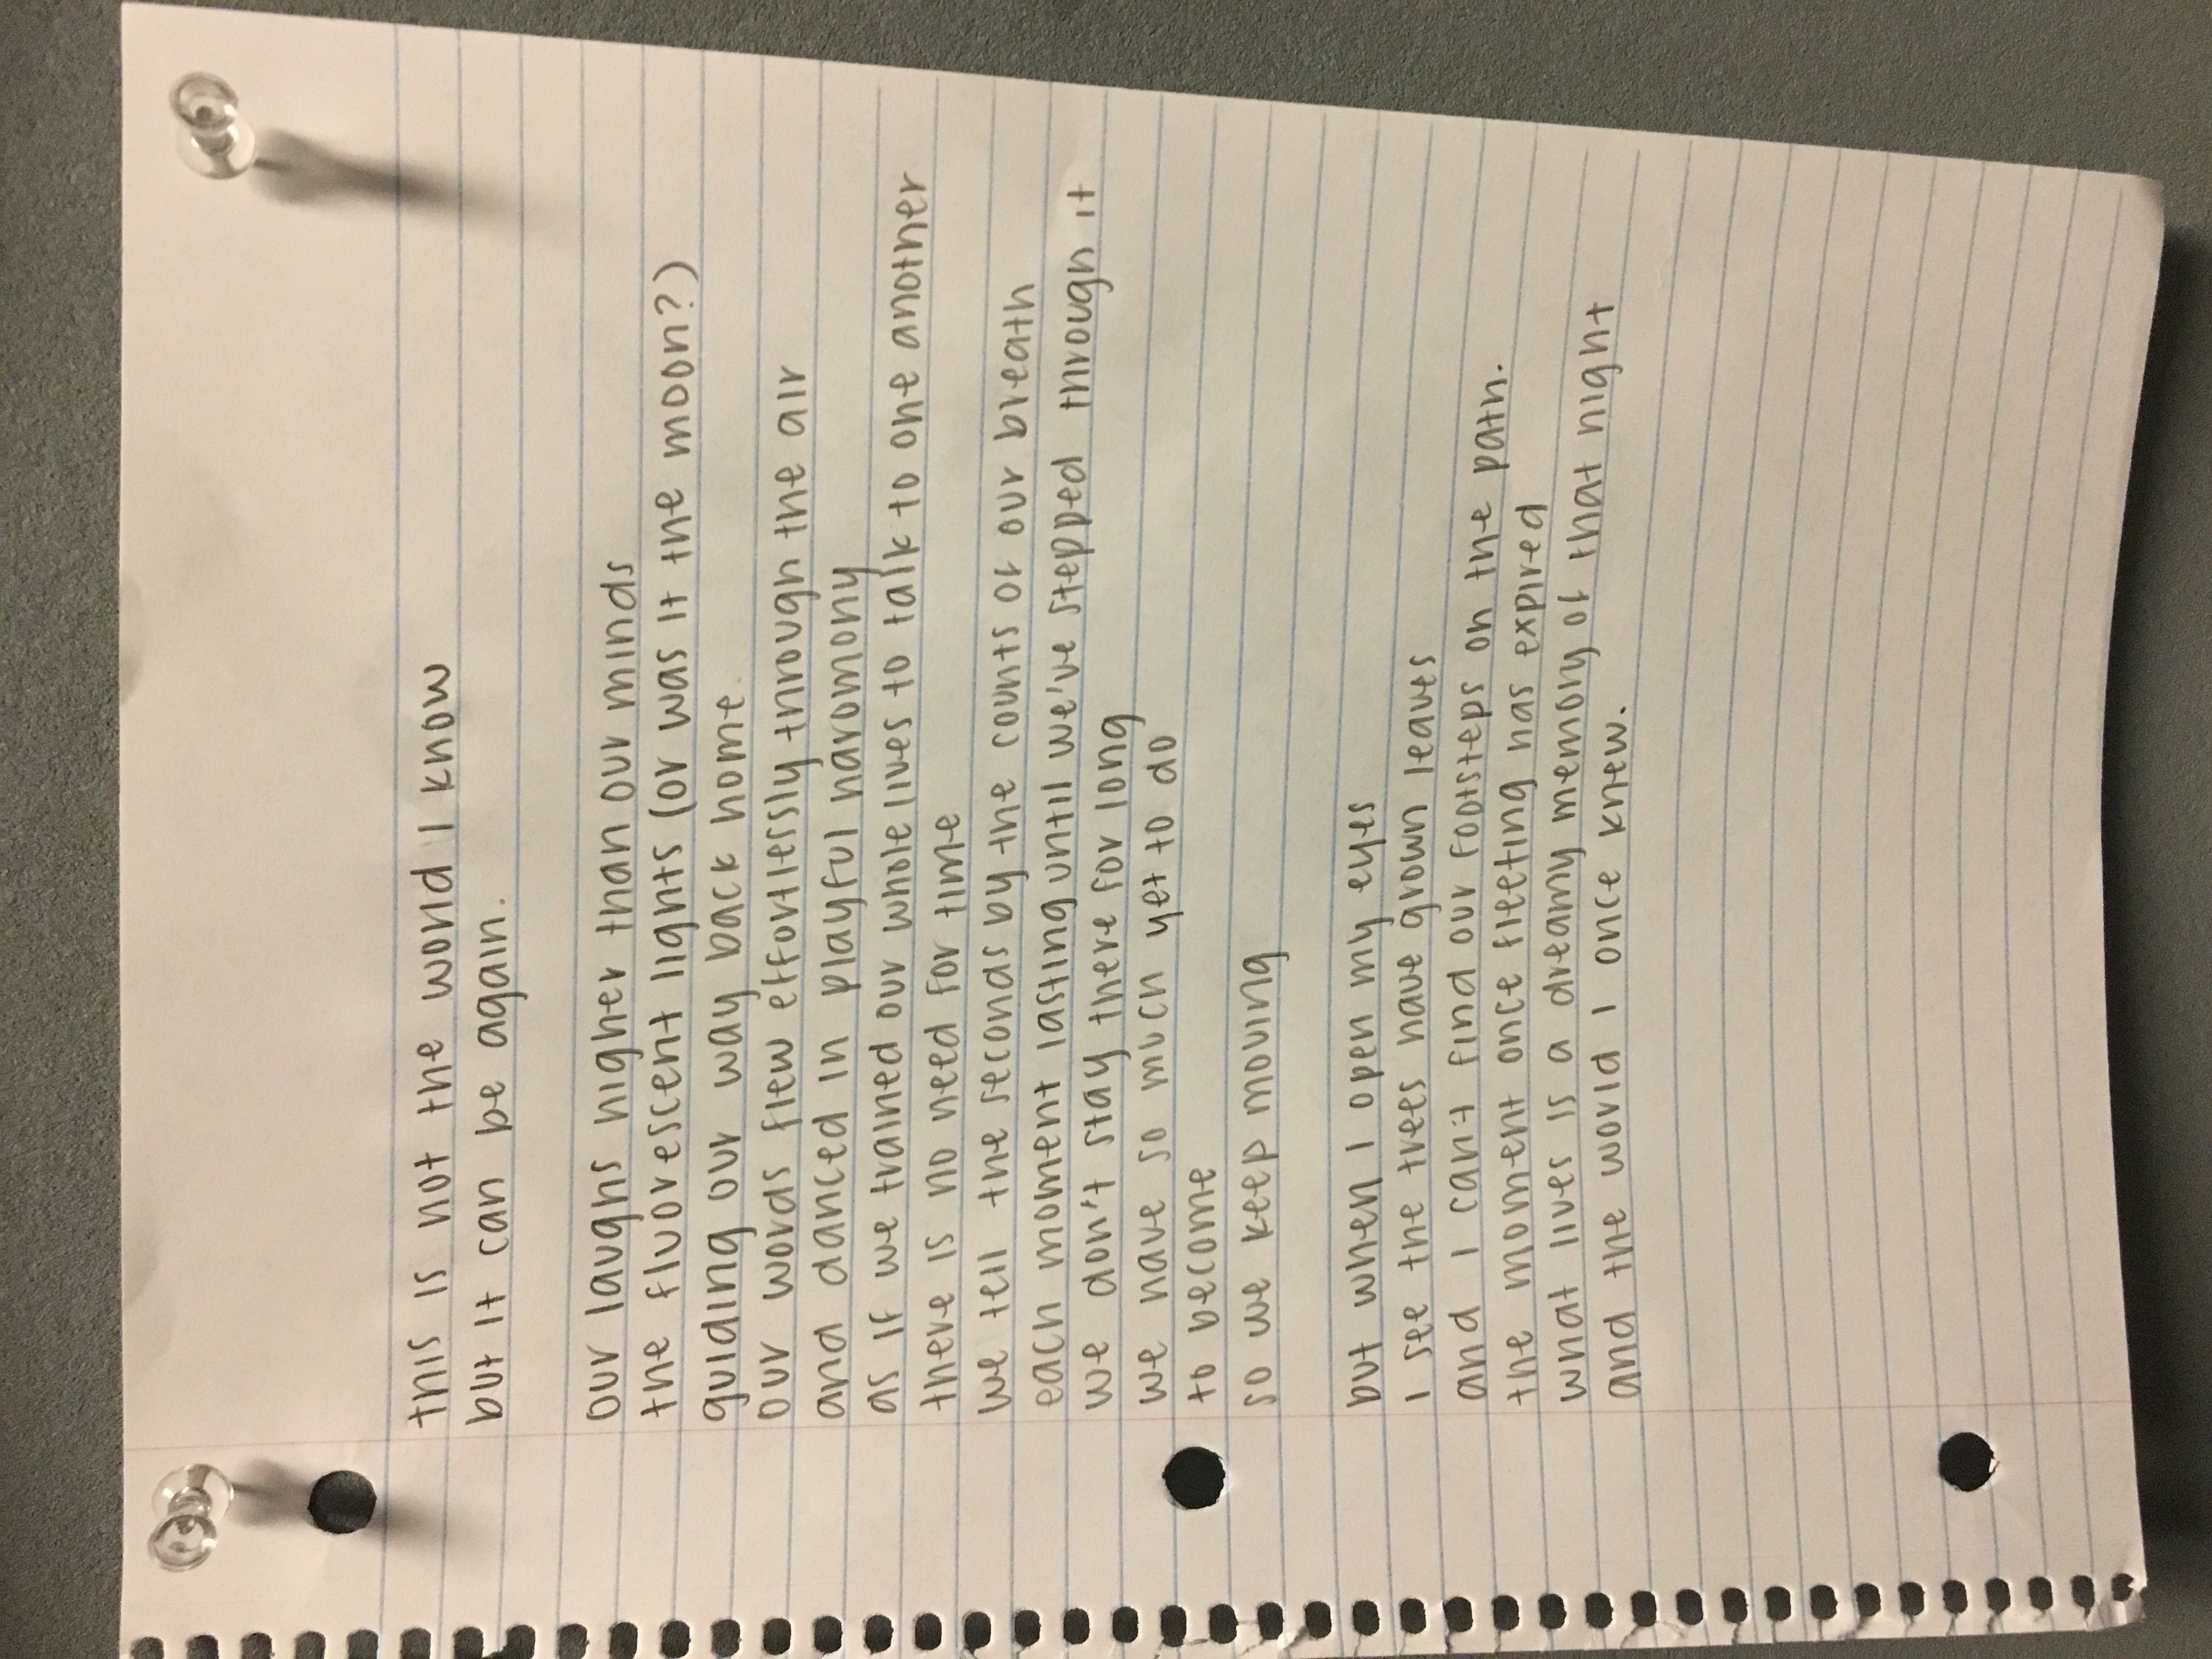 this is not the world I know
but it can be again.
our laughs higher than our minds
the fluorescent lights (or was it the moon?)
guiding our way back home.
our words flew effortlessly through the air
and danced in playful haromony
as if we trained our whole lives to talk to one another
there is no need for time
we tell the seconds by the counts of our breath
each moment lasting until we've stepped through it
we don't stay there for long
we have so much yet to do
to become
so we keep moving
but when I open my eyes
I see the trees have grown leaves
and I can't find our footsteps on the path.
the moment once fleeting has expired
what lives is a dreamy memory of that night
and the world I once knew.